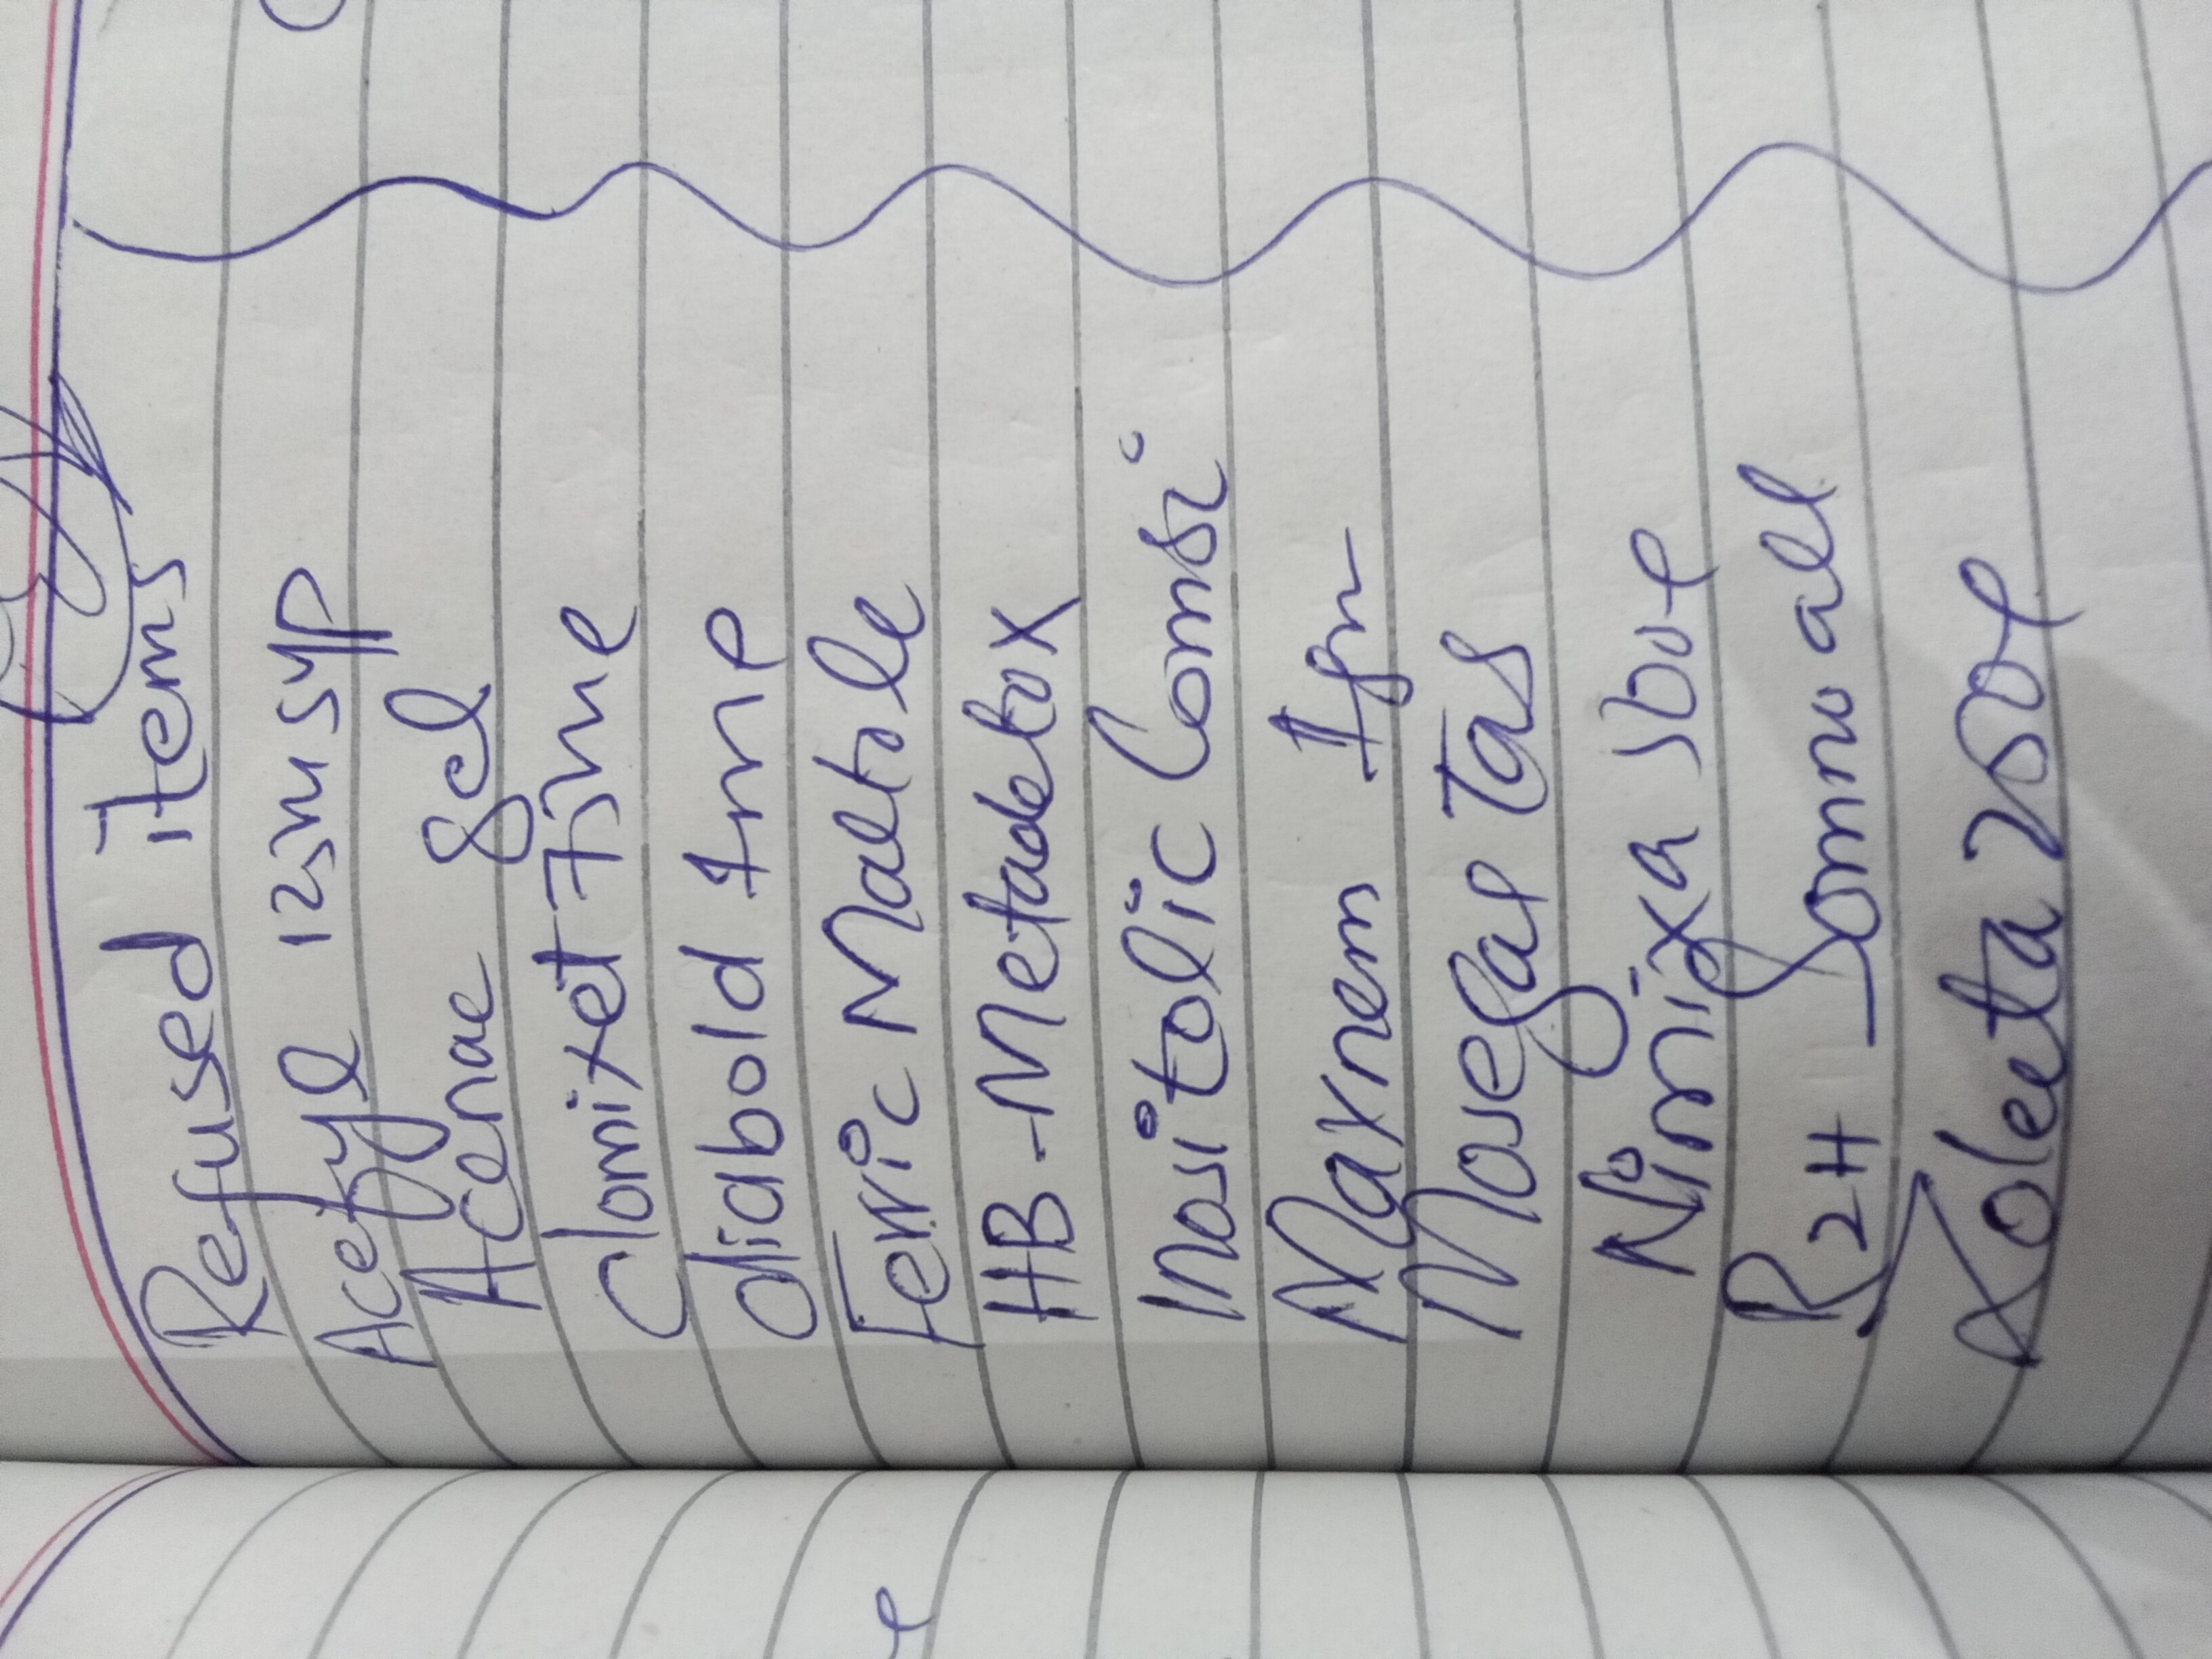 Refused items
Acefyl 125m syp
Acenae gel
Clomixet Fine
diabold Ine
Ferric Maltole
HB-Metadetox
Inositolic Comsi
Maxnem Igm
Mosegar Tas
Nimixa
R2H 50mm all
Xoleeta